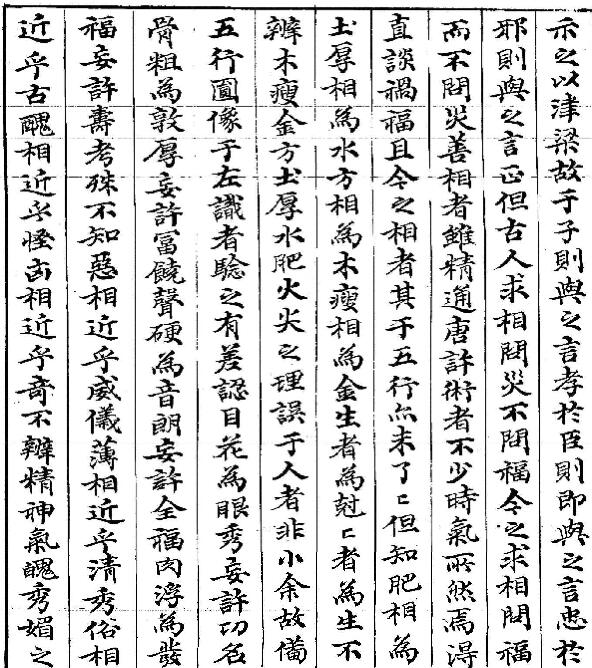 示之以津梁故于子則與之言孝於臣則即與之言忠於
邪則與之言正但古人求相問災不問福今之求相問福
而不問災善相者雖精通唐許術者不少時氣所然焉得
直談禍福且今之相者其于五行尚未了〻但知肥相為
土厚相為水方相為木瘦相為金生者為尅〻者為生不
辨木瘦金方土厚水肥火尖之理誤于人者非小余故備
五行圖像于左識者驗之有差認目花為眼秀妄許功名
骨粗為敦厚妄許富饒聲硬為音朗妄許全福肉浮為發
福妄許壽考殊不知惡相近乎威儀薄相近乎清秀俗相
近乎古醜相近乎怪凶相近乎奇不辨精神氣魄秀媚之